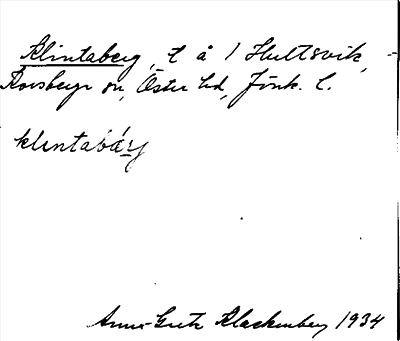 Klintaberg, t å 1 Hultsvik,
Korsberga sn, Östra hd, Jönk. l.
klintabárj
Anna-Greta Klackenberg 1934